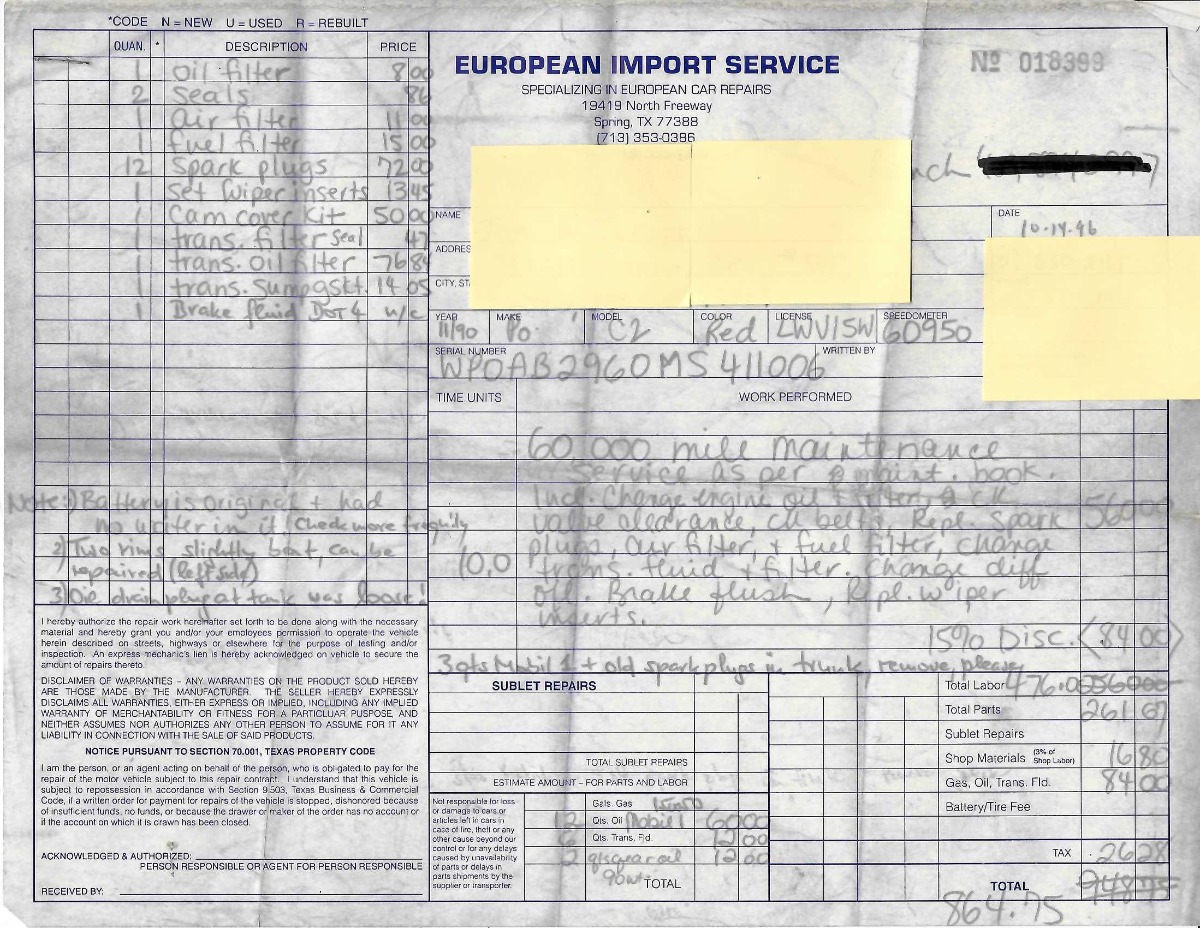 *CODE N = NEW U = USED R = REBUILT
QUAN. * DESCRIPTION PRICE
1 Oil filter 8 00
2 Seals 86
1 Air filter 11 00
1 fuel filter 15 00
12 Spark plugs 72 00
1 Set wiper inserts 13 45
1 Cam cover kit 50 00
1 trans. filter seal 47
1 trans. oil filter 76 84
1 trans. sump gskt. 14 05
1 Brake fluid DOT 4 n/c
Note: 1) Battery is original + had
no water in it! Check more freq'tly
2) Two rims slightly bent, can be
repaired (left side)
3) Oil drain plug at tank was loose!
I hereby authorize the repair work hereinafter set forth to be done along with the necessary
material and hereby grant you and/or your employees permission to operate the vehicle
herein described on streets, highways or elsewhere for the purpose of testing and/or
inspection. An express mechanic's lien is hereby acknowledged on vehicle to secure the
amount of repairs thereto.
DISCLAIMER OF WARRANTIES – ANY WARRANTIES ON THE PRODUCT SOLD HEREBY
ARE THOSE MADE BY THE MANUFACTURER. THE SELLER HEREBY EXPRESSLY
DISCLAIMS ALL WARRANTIES, EITHER EXPRESS OR IMPLIED, INCLUDING ANY IMPLIED
WARRANTY OF MERCHANTABILITY OR FITNESS FOR A PARTICLUAR PUSPOSE, AND
NEITHER ASSUMES NOR AUTHORIZES ANY OTHER PERSON TO ASSUME FOR IT ANY
LIABILITY IN CONNECTION WITH THE SALE OF SAID PRODUCTS.
NOTICE PURSUANT TO SECTION 70.001, TEXAS PROPERTY CODE
I am the person, or an agent acting on behalf of the person, who is obligated to pay for the
repair of the motor vehicle subject to this repair contract. I understand that this vehicle is
subject to repossession in accordance with Section 9.503, Texas Business & Commercial
Code, if a written order for payment for repairs of the vehicle is stopped, dishonored because
of insufficient funds, no funds, or because the drawer or maker of the order has no account or
if the account on which it is drawn has been closed.
ACKNOWLEDGED & AUTHORIZED:
PERSON RESPONSIBLE OR AGENT FOR PERSON RESPONSIBLE
RECEIVED BY:
EUROPEAN IMPORT SERVICE
SPECIALIZING IN EUROPEAN CAR REPAIRS
19419 North Freeway
Spring, TX 77388
(713) 353-0386
Nº 018399
NAME
DATE
10-14-96
ADDRES
CITY, ST
YEAR MAKE MODEL COLOR LICENSE SPEEDOMETER
11/90 Po. C2 Red LWV15W 60950
SERIAL NUMBER WRITTEN BY
WPOAB2960MS411006
TIME UNITS WORK PERFORMED
60,000 mile maintenance
Service as per maint. book.
Incl. Change engine oil + filter, ck
valve clearance, ck belts, Repl. Spark 560 00
plugs, air filter, + fuel filter, change
10.0 trans. fluid + filter. Change diff
oil. Brake flush, Repl. wiper
inserts.
15% Disc. <84 00>
3 qts Mobil 1 + old spark plugs in trunk, remove, please
SUBLET REPAIRS
TOTAL SUBLET REPAIRS
ESTIMATE AMOUNT – FOR PARTS AND LABOR
Not responsible for loss
or damage to cars or
articles left in cars in
case of fire, theft or any
other cause beyond our
control or for any delays
caused by unavailability
of parts or delays in
parts shipments by the
supplier or transporter.
Gals. Gas
12 Qts. Oil Mobil 1 60 00
6 Qts. Trans. Fld. 12 00
2 qts gear oil 12 00
90wt
TOTAL
Total Labor 476.00 560 00
Total Parts 261 67
Sublet Repairs
Shop Materials (3% of Shop Labor) 16 80
Gas, Oil, Trans. Fld. 84 00
Battery/Tire Fee
TAX 26 28
TOTAL 948 75
864.75